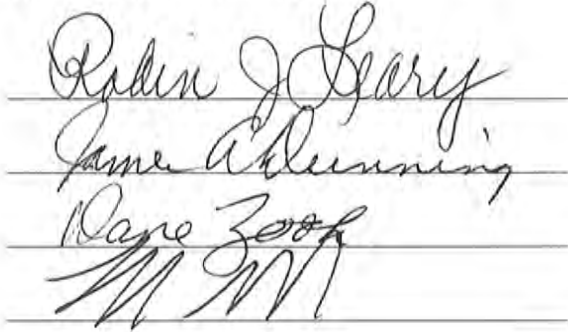 Robin J Leary
James A Dunning
Dane Zook